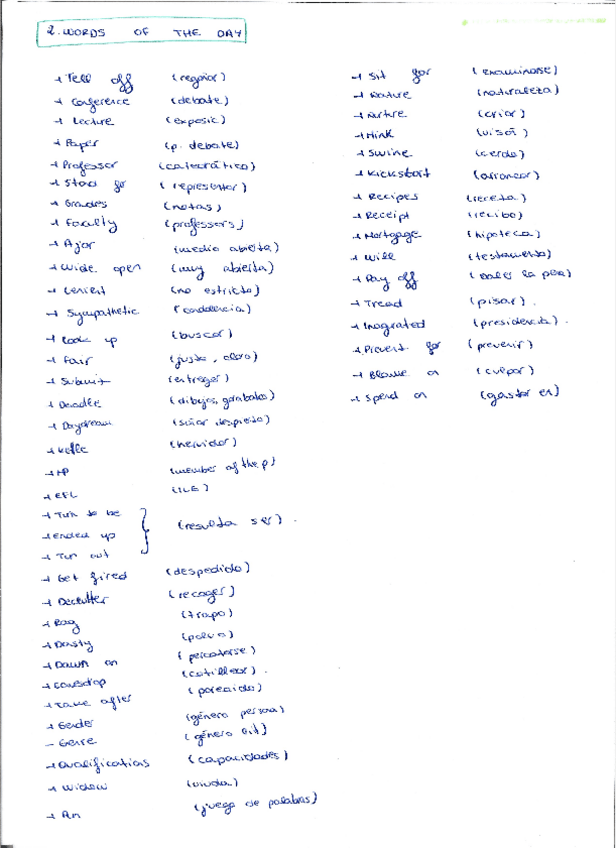 2. WORDS OF THE DAY
→ Tell off (regañar)
→ Conference (debate)
→ Lecture (exposic)
→ Paper (p. debate)
→ Professor (catedrático)
→ Stand for (representar)
→ Grades (notas)
→ Faculty (professors)
→ Ajar (media abierta)
→ Wide open (muy abierta)
→ Lenient (no estricto)
→ Sympathetic (condolencia)
→ Look up (buscar)
→ Fair (justo, claro)
→ Submit (entregar)
→ Doodle (dibujos, garabatos)
→ Daydream (soñar despierto)
→ Kettle (hervidor)
→ MP (member of the p)
→ EFL (ILE)
→ Turn to be
→ ended up (resulta ser).
→ Turn out
→ Get fired (despedido)
→ Declutter (recoger)
→ Rag (trapo)
→ Dusty (polvo)
→ Dawn on (percatarse)
→ Eavesdrop (cotillear).
→ Take after (parecido)
→ Gender (género persona)
- Genre (género lit)
→ Qualifications (capacidades)
→ Widow (viuda)
→ Pun (juego de palabras)
→ Sit for (examinarse)
→ Nature (naturaleza)
→ Nurture (criar)
→ Mink (visón)
→ Swine (cerdo)
→ Kickstart (arrancar)
→ Recipes (receta)
→ Receipt (recibo)
→ Mortgage (hipoteca)
→ Will (testamento)
→ Pay off (valer la pena)
→ Tread (pisar).
→ (presidencia).
→ Prevent for (prevenir)
→ Blame on (culpar)
→ Spend on (gastar en)